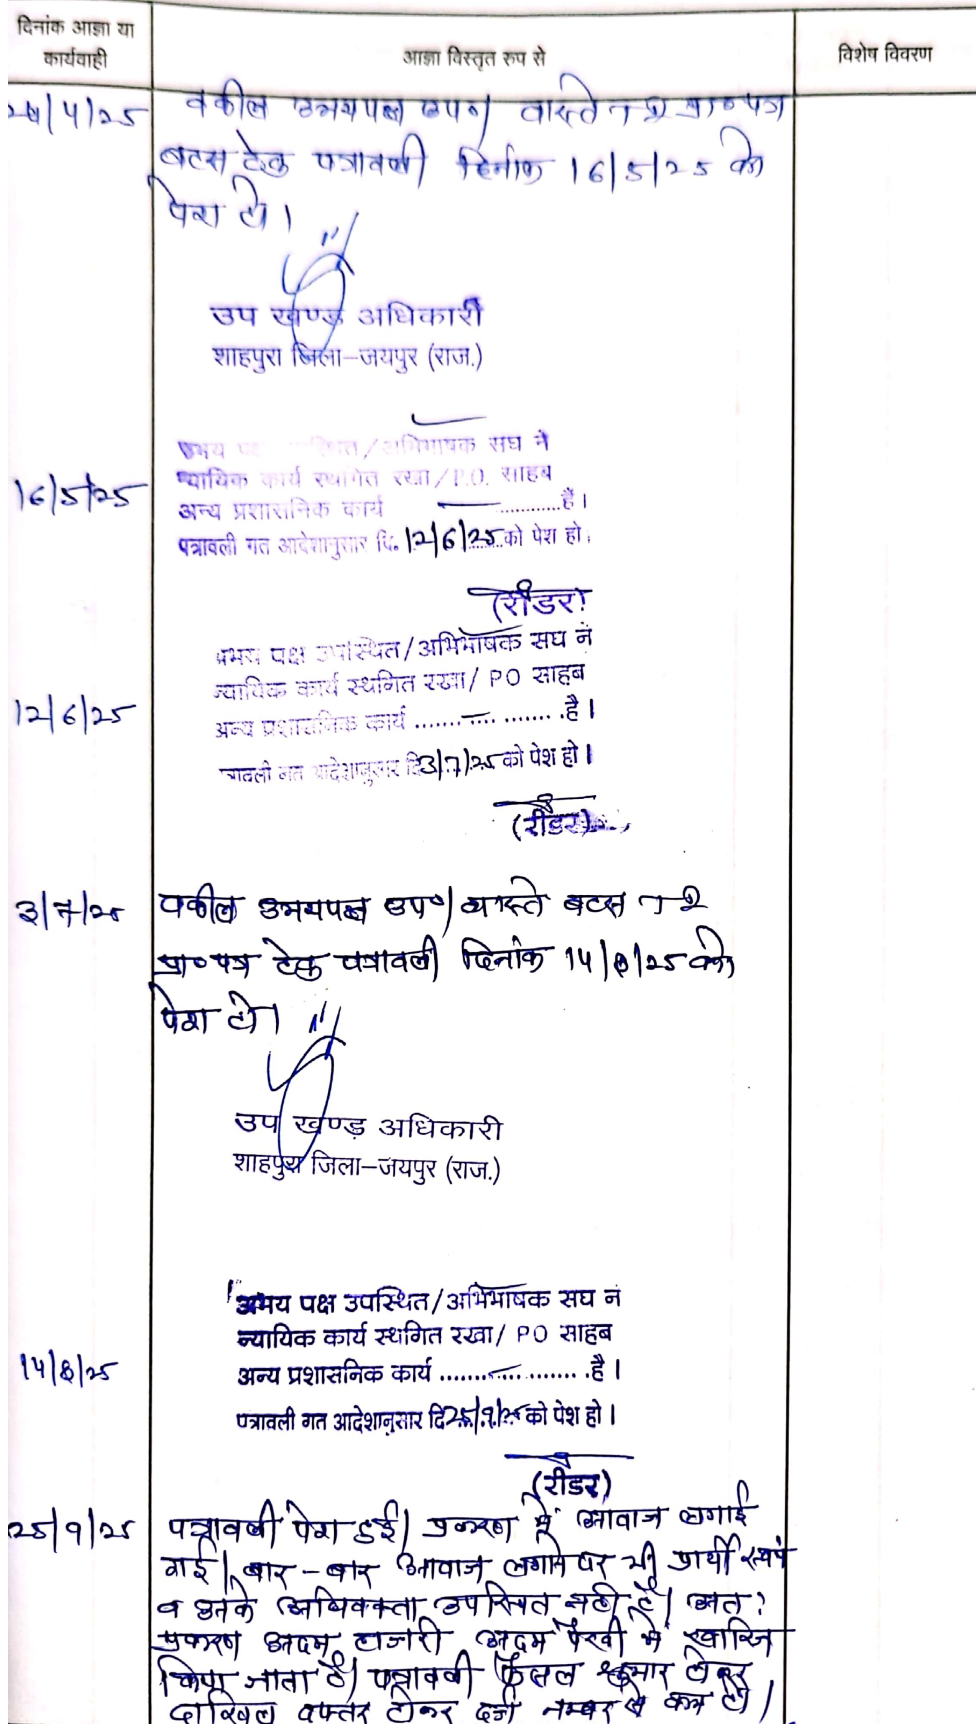 दिनांक आज्ञा या
कार्यवाही
आज्ञा विस्तृत रुप से
विशेष विवरण
24/4/25 वकील उभयपक्ष उप०/ वास्ते त २ प्रा०पत्र
बहस हेतु पत्रावली दिनांक 16/5/25 को
पेश हो।
उप खण्ड अधिकारी
शाहपुरा जिला–जयपुर (राज.)
उभय पक्ष उपस्थित/अभिभाषक संघ ने
न्यायिक कार्य स्थगित रखा/P.O. साहब
16/5/25
अन्य प्रशासनिक कार्य ............है।
पत्रावली गत आदेशानुसार दि. 12/6/25 को पेश हो।
(रीडर)
उभय पक्ष उपस्थित/अभिभाषक संघ ने
न्यायिक कार्य स्थगित रखा/ PO साहब
12/6/25
अन्य प्रशासनिक कार्य ................है।
पत्रावली गत आदेशानुसार दि 3/7/25 को पेश हो।
(रीडर)
3/7/25 वकील उभयपक्ष उप०/ वास्ते बहस त २
प्रा०पत्र हेतु पत्रावली दिनांक 14/8/25 को
पेश हो।
उप खण्ड अधिकारी
शाहपुरा जिला–जयपुर (राज.)
उभय पक्ष उपस्थित/अभिभाषक संघ ने
न्यायिक कार्य स्थगित रखा/ PO साहब
14/8/25 अन्य प्रशासनिक कार्य ....................है।
पत्रावली गत आदेशानुसार दि 25/9/25 को पेश हो।
(रीडर)
25/9/25 पत्रावली पेश हुई। प्रकरण में आवाज लगाई
गई। बार-बार आवाज लगाने पर भी प्रार्थी स्वयं
व उनके अधिवक्ता उपस्थित नही है। अत:
प्रकरण अदम हाजरी अदम पैरवी में खारिज
किया जाता है। पत्रावली फैसल शुमार होकर
दाखिल दफ्तर होकर दर्ज नम्बर से कम हो।